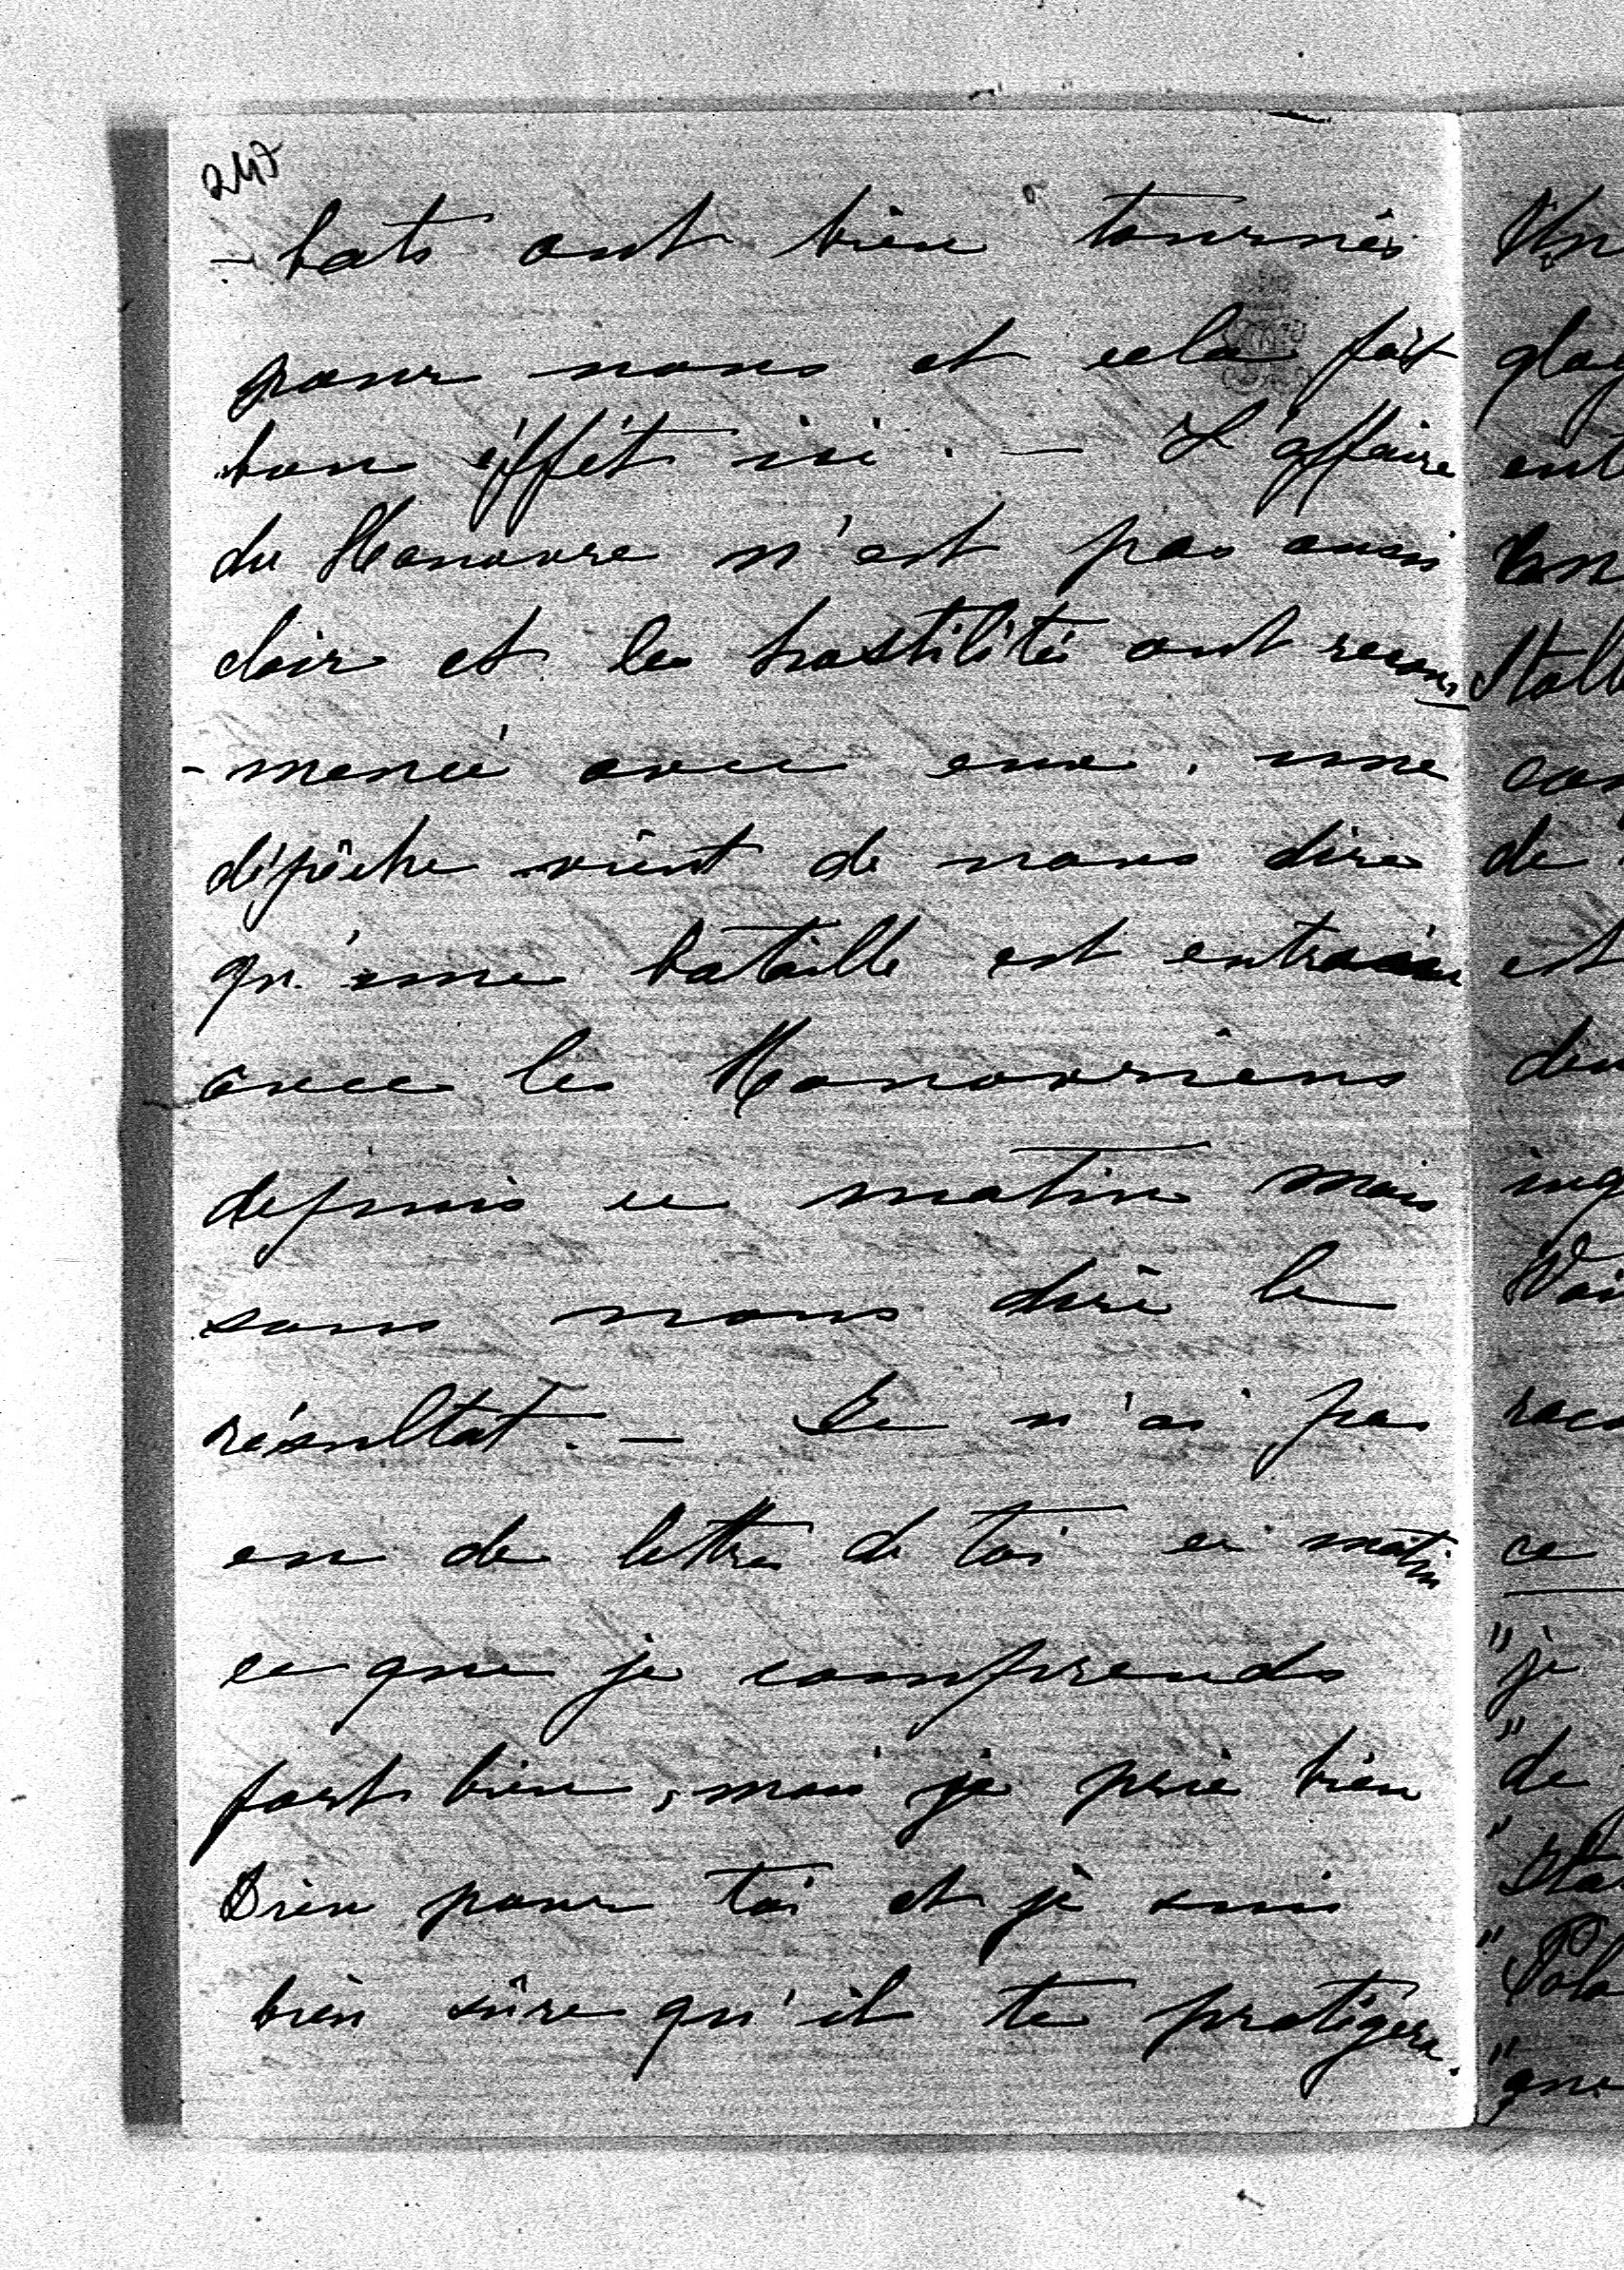 247
-bats ont bien tournés
pour nous et cela fait
bon éffét ici. — L'affaire
du Hanovre n'est pas aussi
clair et les hostilités ont recom-
-mencé avec eux. une
dépêche vient de nous dire
qu'une bataille est
avec les Hanovriens
depuis ce matin mais
sans nous dire le
résultat. — Je n'ai pas
eu de lettre de toi ce matin
ce que je comprends
fort bien, mais je prie bien
Dieu pour toi et je suis
bien sûre qu'il te protégera.
de
est
ce
"je
"de